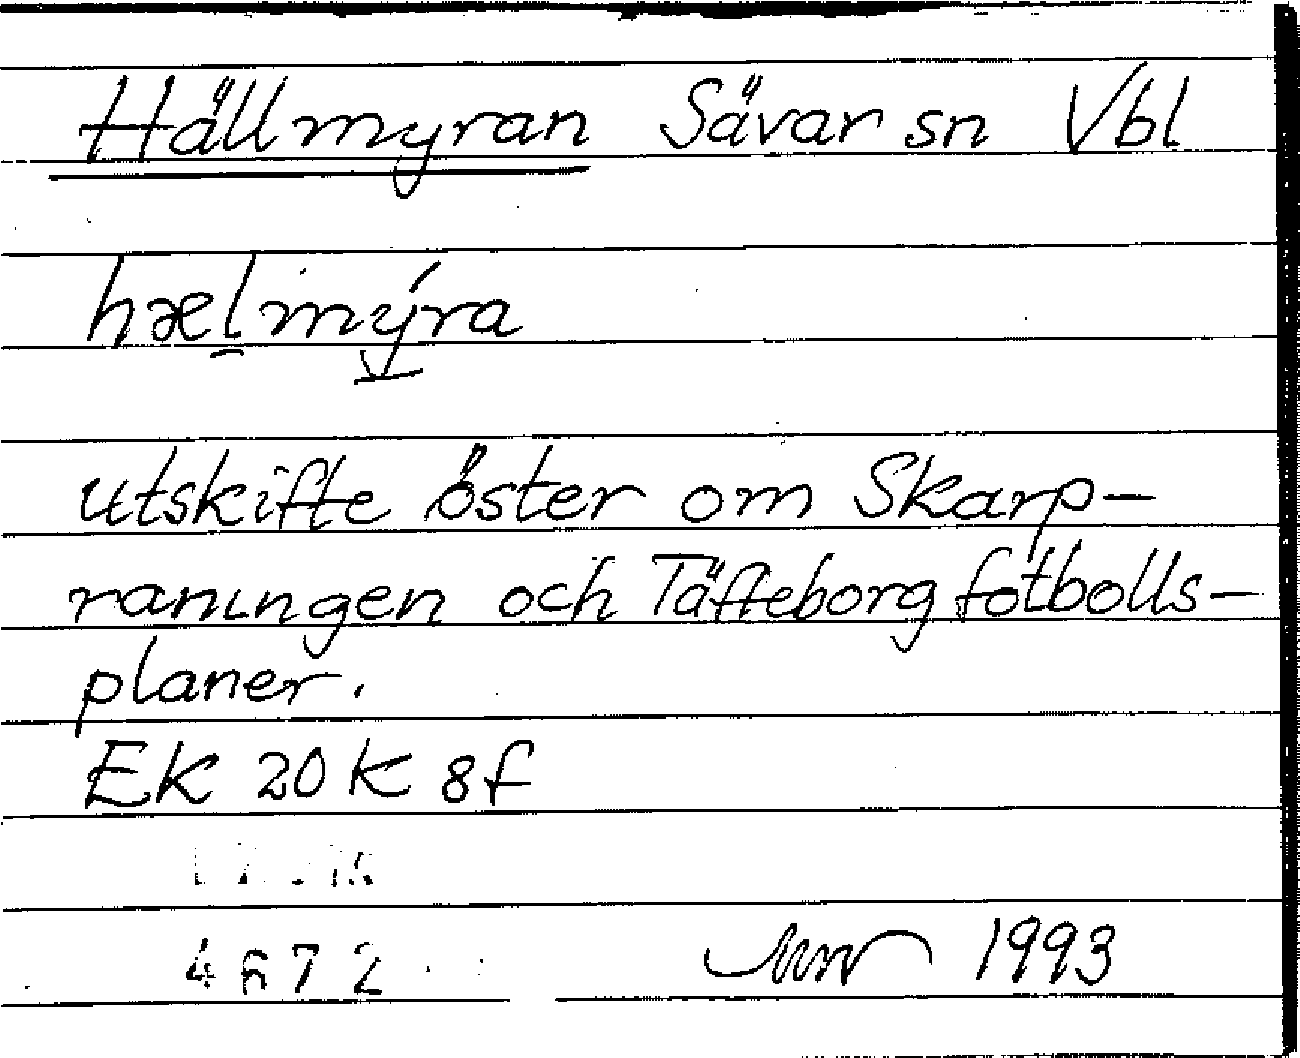 Hällmyran Sävar sn Vbl
hælmýra
utskifte öster om Skarp-
raningen och Täfteborg fotbolls-
planer.
EK 20K 8f
4672
1993